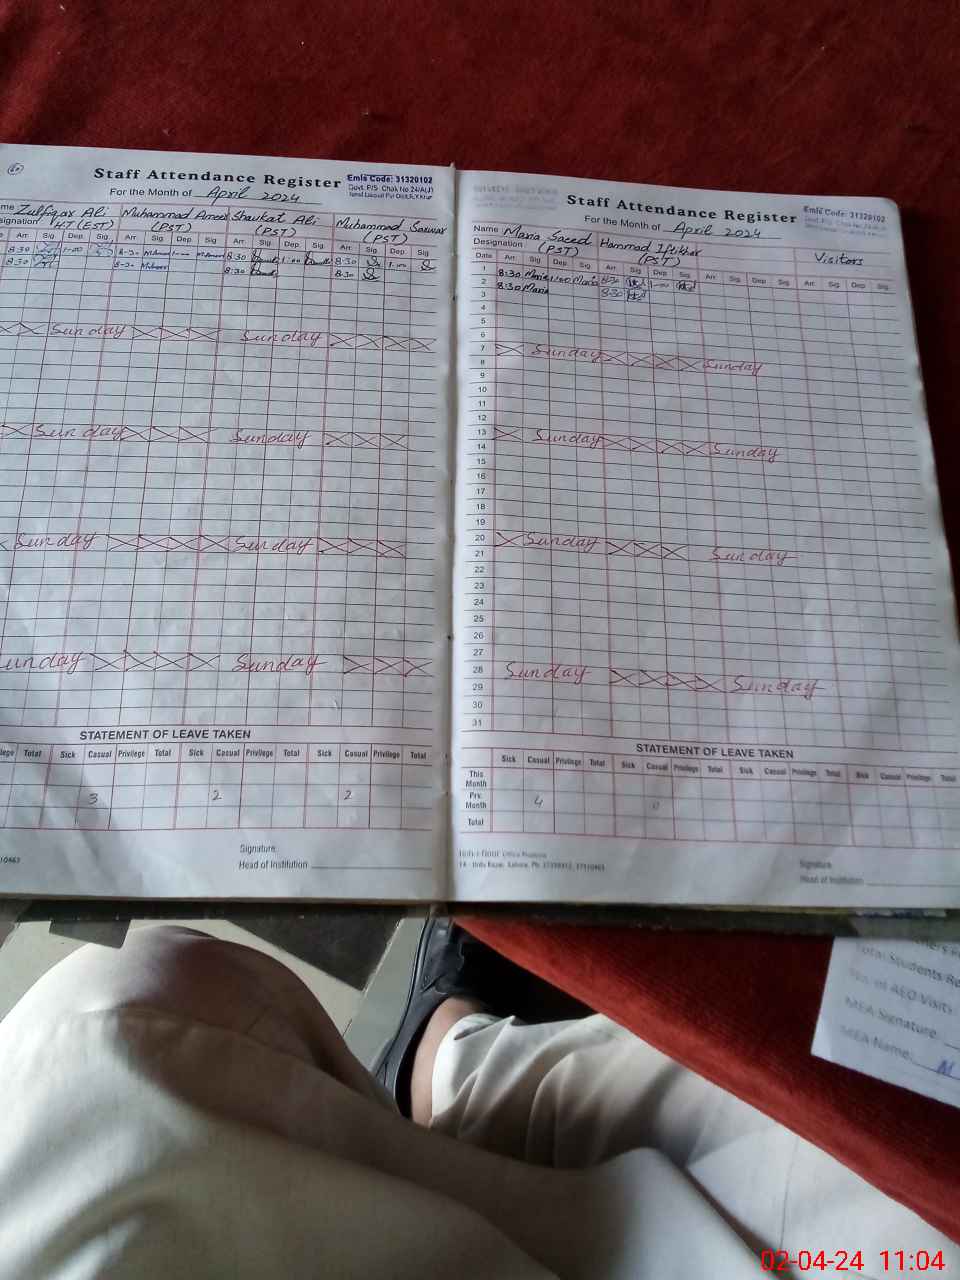 Staff Attendance Register
Emis Code: 31320102
Govt. P/S Chak No 24/A(J)
For the Month of April 2024
Zulfiqar Ali Muhammad Ameer Shaukat Ali Muhammad Sarwar
H.T (EST) (PST) (PST) (PST)
Arr. Sig. Dep. Sig. Arr. Sig. Dep. Sig. Arr. Sig. Dep. Sig. Arr. Sig. Dep. Sig.
8:30 1-00 8-30 1-00 8:30 1:00 8:30 1-00
8:30 8-30 8:30 8:30
Sunday Sunday
Sunday Sunday
Sunday Sunday
Sunday Sunday
STATEMENT OF LEAVE TAKEN
Total Sick Casual Privilege Total Sick Casual Privilege Total Sick Casual Privilege Total
3 2 2
Signature:
Head of Institution
Staff Attendance Register
Emis Code: 31320102
For the Month of April 2024
Name Maria Saeed Hammad Iftikhar Visitors
Designation (PST) (PST)
Date Arr. Sig. Dep. Sig. Arr. Sig. Dep. Sig. Arr. Sig. Dep. Sig. Arr. Sig. Dep. Sig.
1 8:30 Maria 1:00 Maria 8:30 1-00
2 8:30 Maria 8:30
3
4
5
6
7 Sunday Sunday
8
9
10
11
12
13 Sunday
14 Sunday
15
16
17
18
19
20 Sunday
21 Sunday
22
23
24
25
26
27
28 Sunday
29 Sunday
30
31
STATEMENT OF LEAVE TAKEN
Sick Casual Privilege Total Sick Casual Privilege Total Sick Casual Privilege Total Sick Casual Privilege Total
This Month
Prv. Month 4 0
Total
Signature
Head of Institution
Total Students
No. of AEO Visits
MEA Signature
MEA Name:
02-04-24 11:04